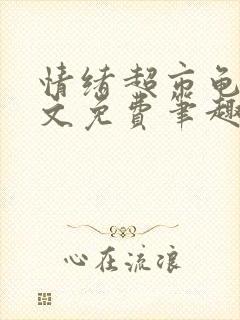 情绪超市龟
文免费笔趣
心在流浪